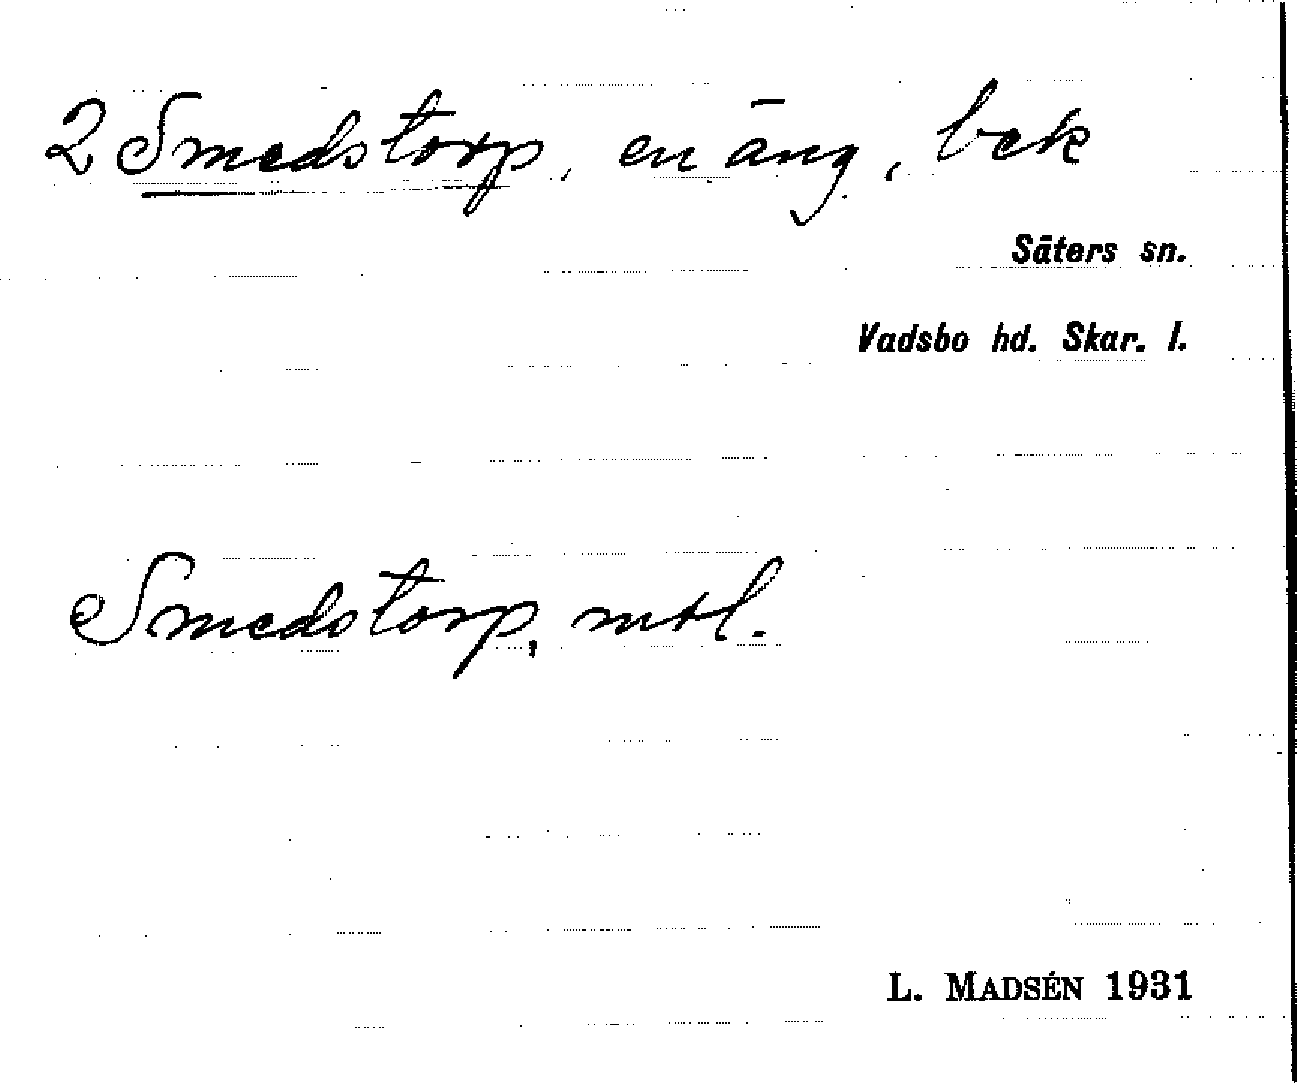 2 Smedstorp, en äng, bek
Säters sn.
Vadsbo hd. Skar. l.
Smedstorp, mtl.
L. MADSÉN 1931